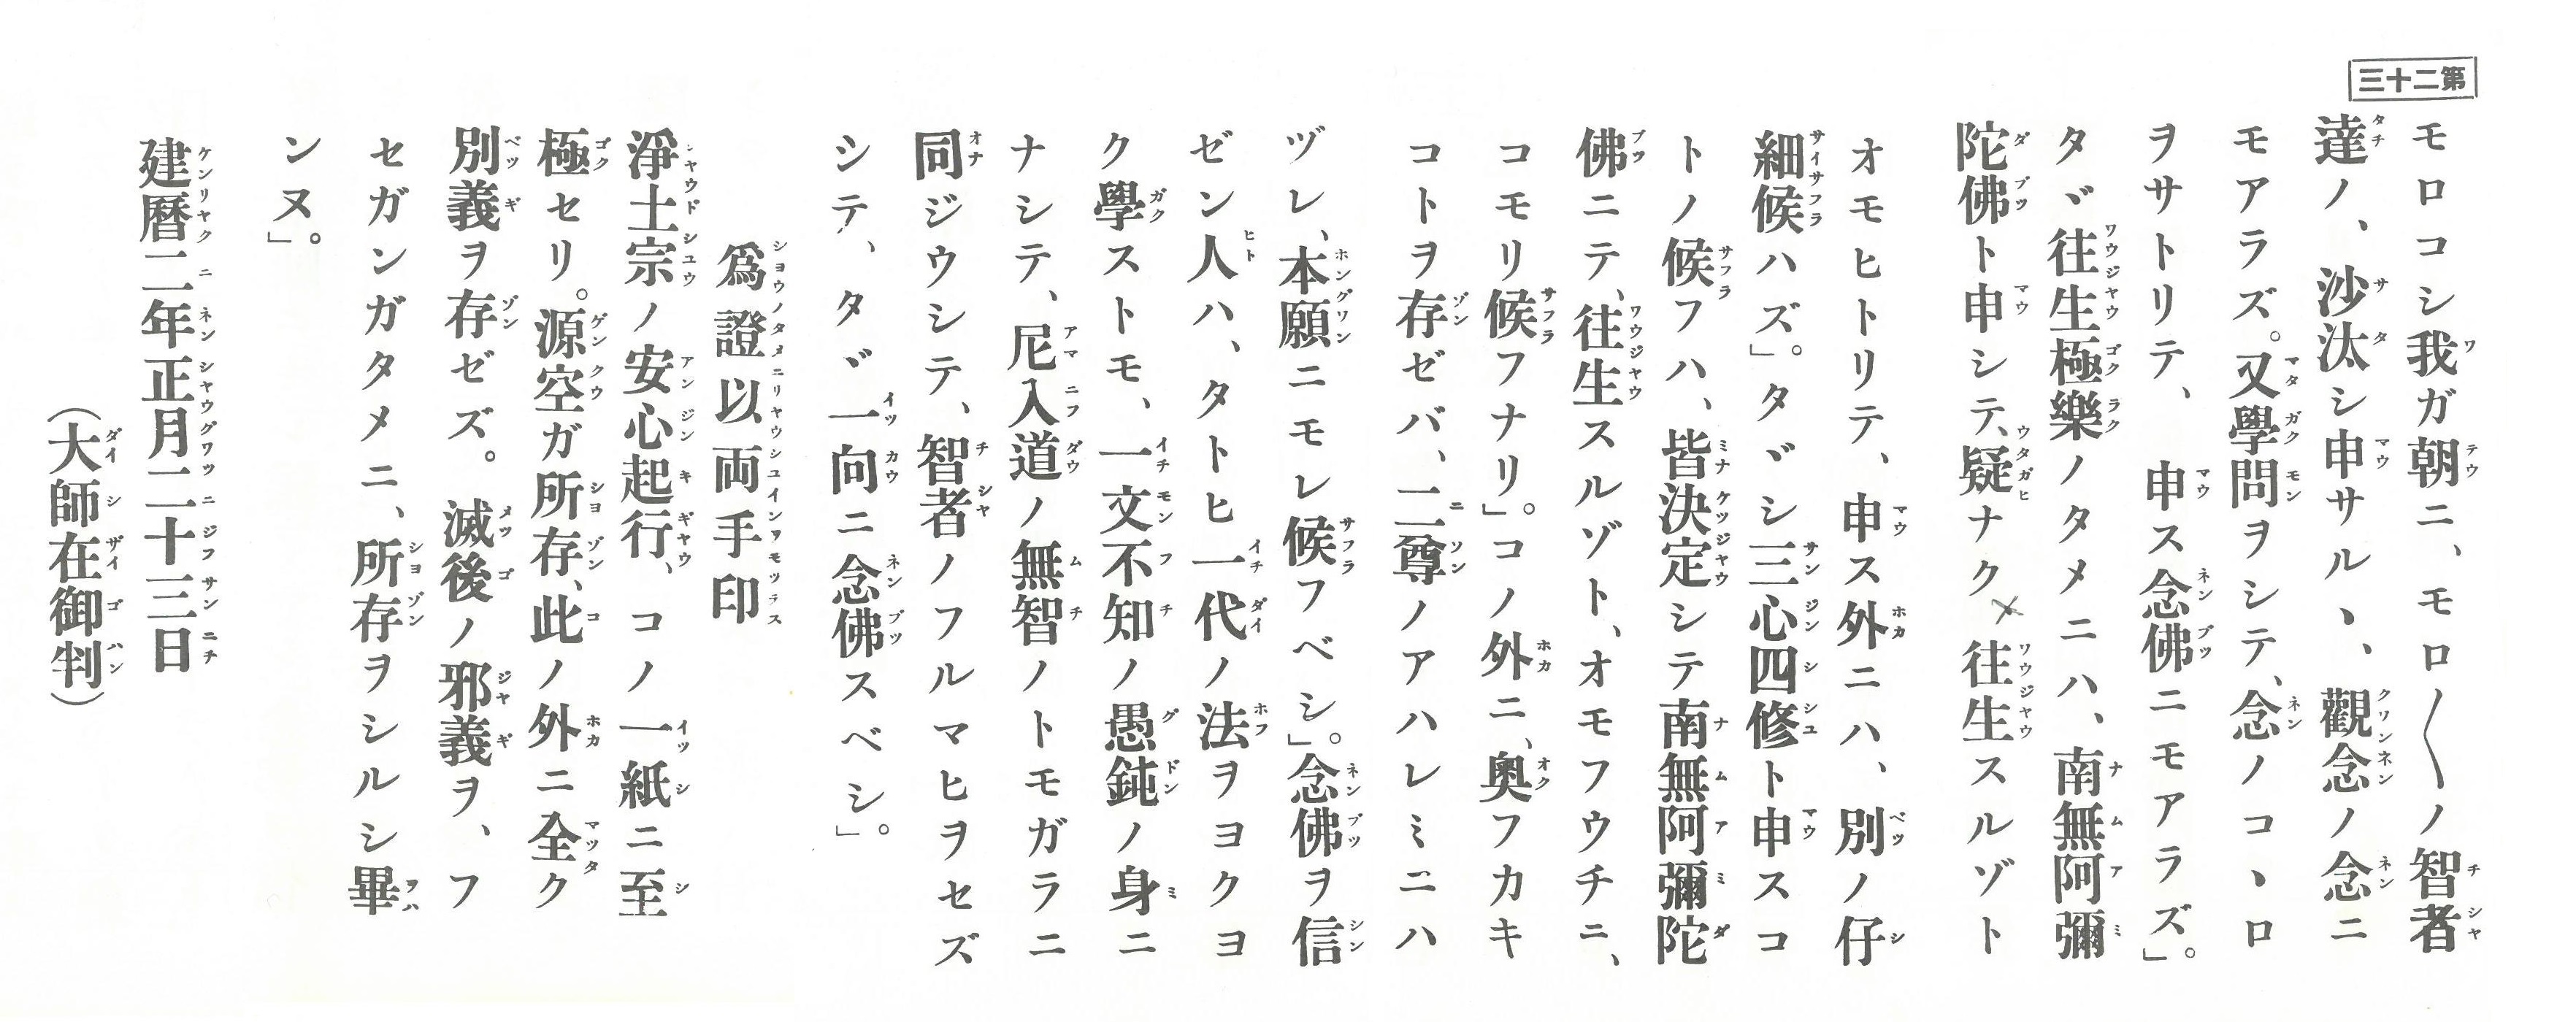 第二十三
モロコシ我ガ朝ニ、モロ〱ノ智者
達ノ、沙汰シ申サルヽ、觀念ノ念ニ
モアラズ。又學問ヲシテ、念ノコヽロ
ヲサトリテ、申ス念佛ニモアラズ」。
タヾ往生極樂ノタメニハ、南無阿彌
陀佛ト申シテ、疑ナク往生スルゾト
オモヒトリテ、申ス外ニハ、別ノ仔
細候ハズ」。タヾシ三心四修ト申スコ
トノ候フハ、皆決定シテ南無阿彌陀
佛ニテ、往生スルゾト、オモフウチニ、
コモリ候フナリ」。コノ外ニ、奥フカキ
コトヲ存ゼバ、二尊ノアハレミニハ
ヅレ、本願ニモレ候フベシ」。念佛ヲ信
ゼン人ハ、タトヒ一代ノ法ヲヨクヨ
ク學ストモ、一文不知ノ愚鈍ノ身ニ
ナシテ、尼入道ノ無智ノトモガラニ
同ジウシテ、智者ノフルマヒヲセズ
シテ、タヾ一向ニ念佛スベシ」。
爲證以両手印
淨土宗ノ安心起行、コノ一紙ニ至
極セリ。源空ガ所存、此ノ外ニ全ク
別義ヲ存ゼズ。滅後ノ邪義ヲ、フ
セガンガタメニ、所存ヲシルシ畢
ンヌ」。
建曆二年正月二十三日
（大師在御判）